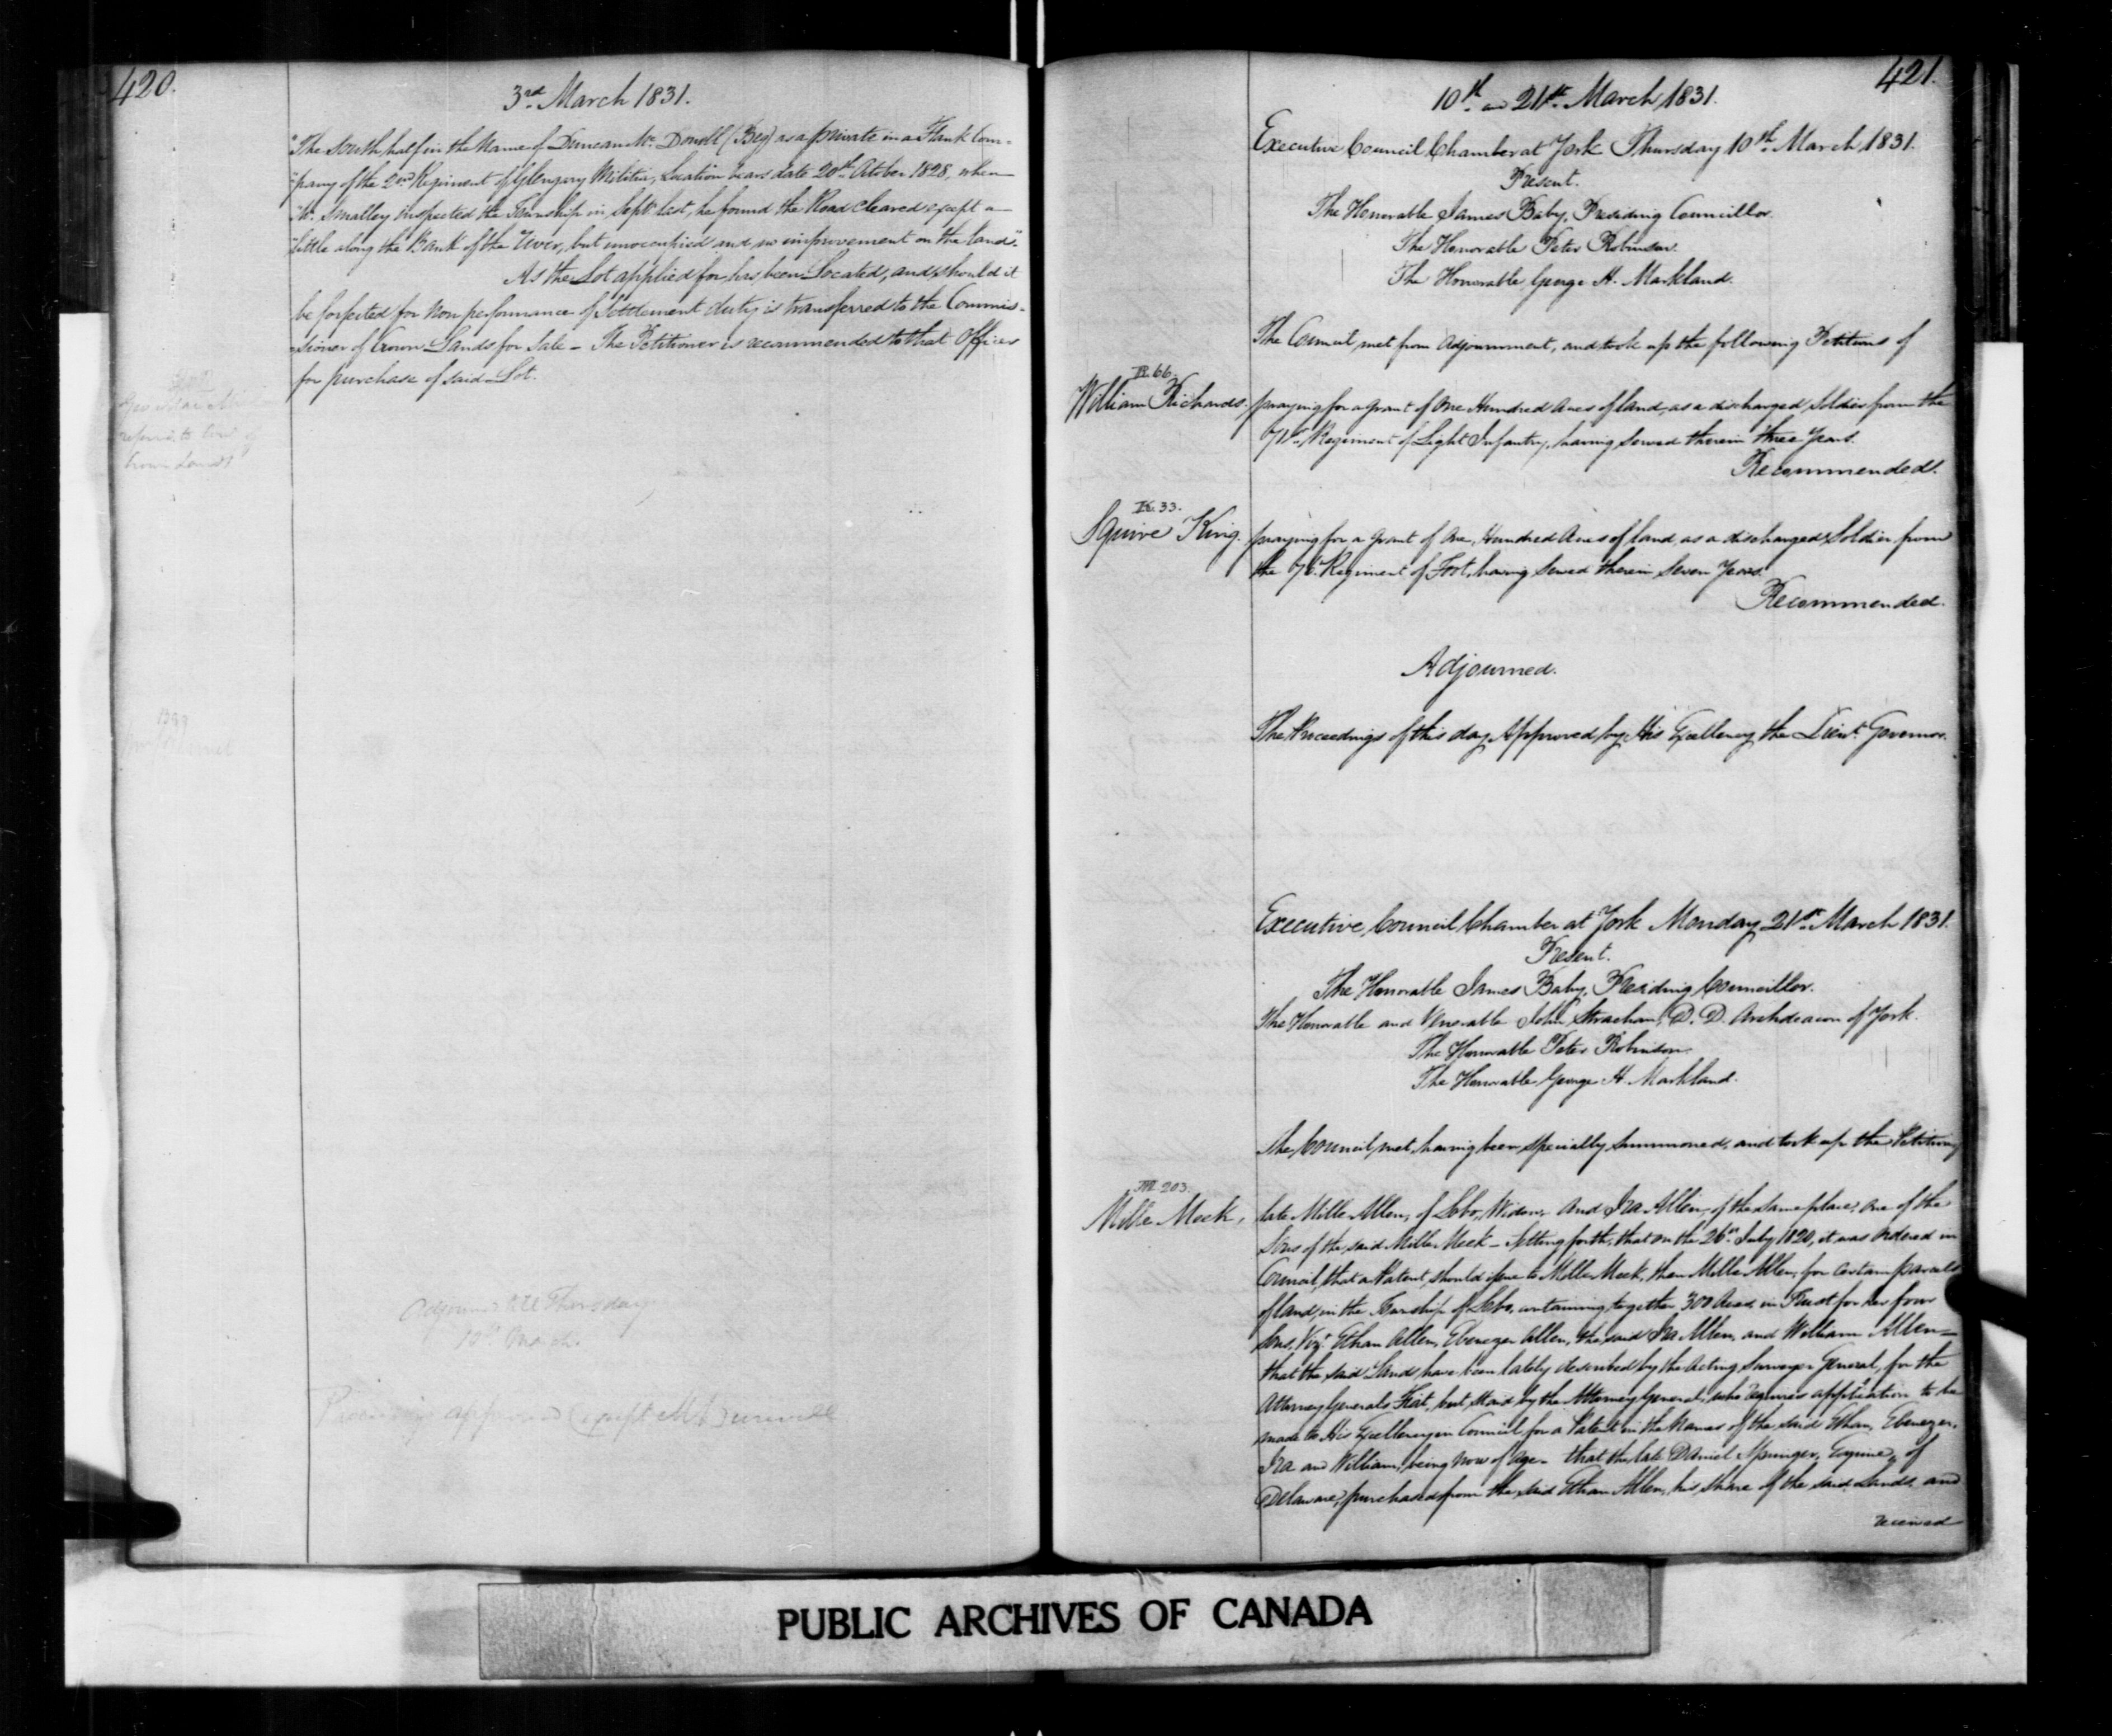 420.
3rd March 1831.
"The South half in the Name of Duncan Mc. Donell (Beg) as a private in a Flank Com-
"pany of the 2nd Regiment of Glengary Militia, Location bears date 20th October 1828, when
"Mr. Smalley inspected the Township in Septr last, he found the Road cleared except a
"little along the Bank of the River, but unoccupied and no improvement on the land".
As the Lot applied for has been Located, and should it
be forfeited for Non performance of Settlement duty is transferred to the Commis-
-sioner of Crown Lands for Sale - The Petitioner is recommended to that Officer
for purchase of said Lot.
Crown Lands
Adjourned till Thursday
10th March.
Proceedings approved (except
421.
10th and 21st March 1831.
Executive Council Chamber at York Thursday 10th March 1831.
Present.
The Honorable James Baby, Presiding Councillor.
The Honorable Peter Robinson.
The Honorable George H. Markland.
The Council met from Adjournment, and took up the following Petitions of
R. 66.
William Richards. praying for a grant of One Hundred Acres of land, as a discharged Soldier from the
71st Regiment of Light Infantry, having served therein three years.
Recommended.
K. 33.
Squire King. praying for a grant of One Hundred Acres of land, as a discharged Soldier from
the Regiment of Foot, having served therein Seven Years.
Recommended.
Adjourned.
The Proceedings of this day Approved by His Excellency the Lieut. Governor.
Executive Council Chamber at York Monday 21st March 1831.
Present.
The Honorable James Baby, Presiding Councillor.
The Honorable and Venerable John Strachan, D. D. Archdeacon of York.
The Honorable Peter Robinson.
The Honorable George H. Markland.
The Council met, having been specially Summoned, and took up the Petition of
M. 203.
Mille Meek, late Mille Allen, of Lobo, Widow, and Ira Allen, of the same place, one of the
Sons of the said Mille Meek - setting forth, that on the 26th July 1820, it was ordered in
Council, that a Patent should issue to Mille Meek, then Mille Allen, for certain parcels
of land, in the Township of Lobo, containing together 300 Acres, in Trust for her four
sons, Vizt. Ethan Allen, Ebenezer Allen, the said Ira Allen, and William Allen -
that the said Lands have been lately described by the Acting Surveyor General, for the
Attorney Generals Fiat, but staid by the Attorney General, who requires application to be
made to His Excellency in Council for a Patent in the Names of the said Ethan, Ebenezer,
Ira and William, being now of age - that the late Daniel Springer, Esquire, of
Delaware, purchased from the said Ethan Allen, his share of the said Lands, and
received
PUBLIC ARCHIVES OF CANADA